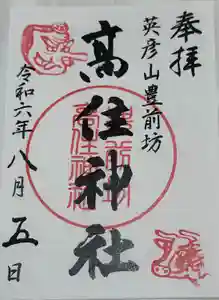 奉拝
英彦山豊前坊
高住神社
令和六年八月五日